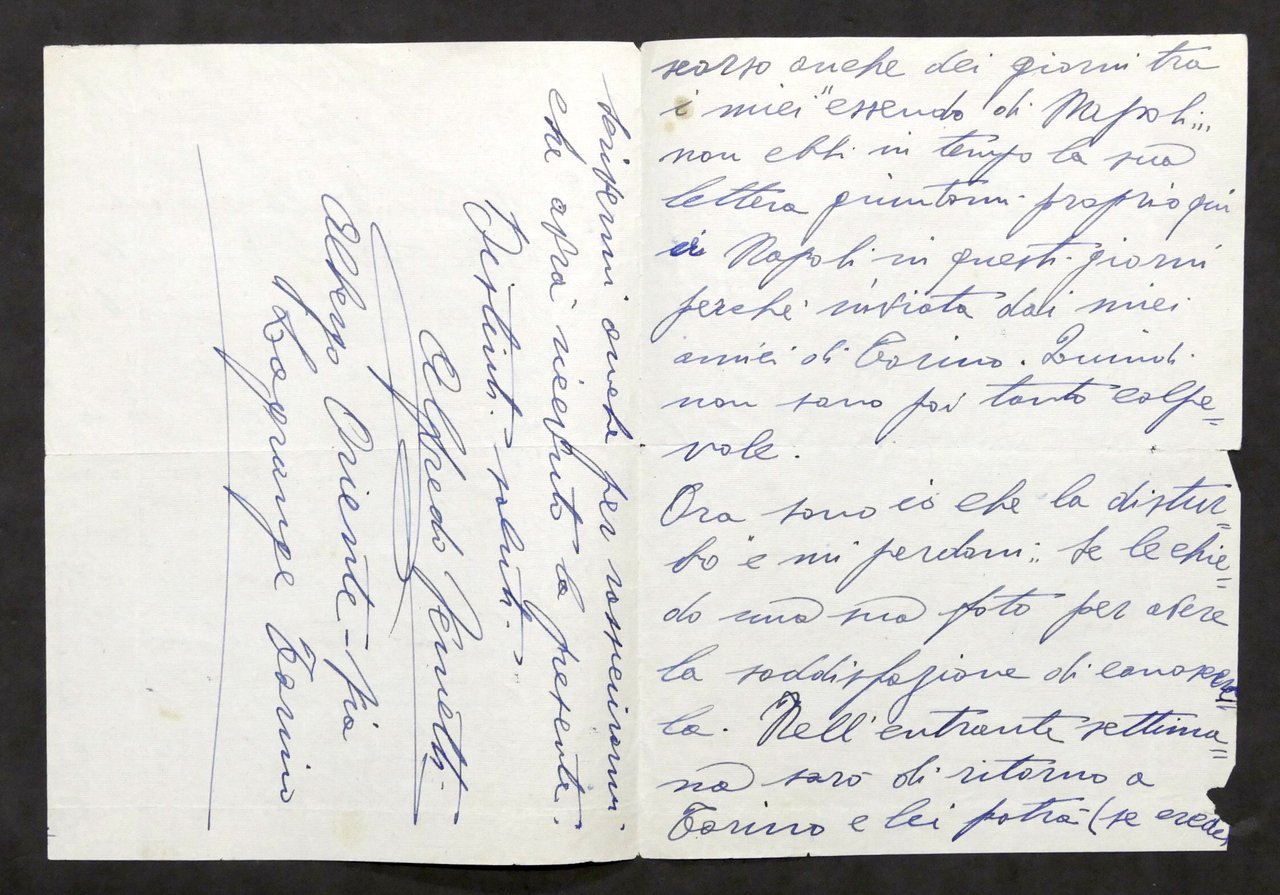 scorso anche dei giorni tra
i miei "essendo di Napoli...
non ebbi in tempo la sua
lettera giuntami proprio qui
a Napoli in questi giorni
perchè inviata dai miei
amici di Torino. Quindi
non sono poi tanto colpe=
vole.
Ora sono io che la distur=
bo "e mi perdoni" se le chie=
do una sua foto per avere
la soddisfazione di conoscer=
la. Nell'entrante settima=
na sarò di ritorno a
Torino e lei potrà (se crede)
scrivermi anche per rassicurarmi
che avrà ricevuto la presente.
Distinti saluti.
Alfredo
Albergo Oriente - Via
Lagrange Torino